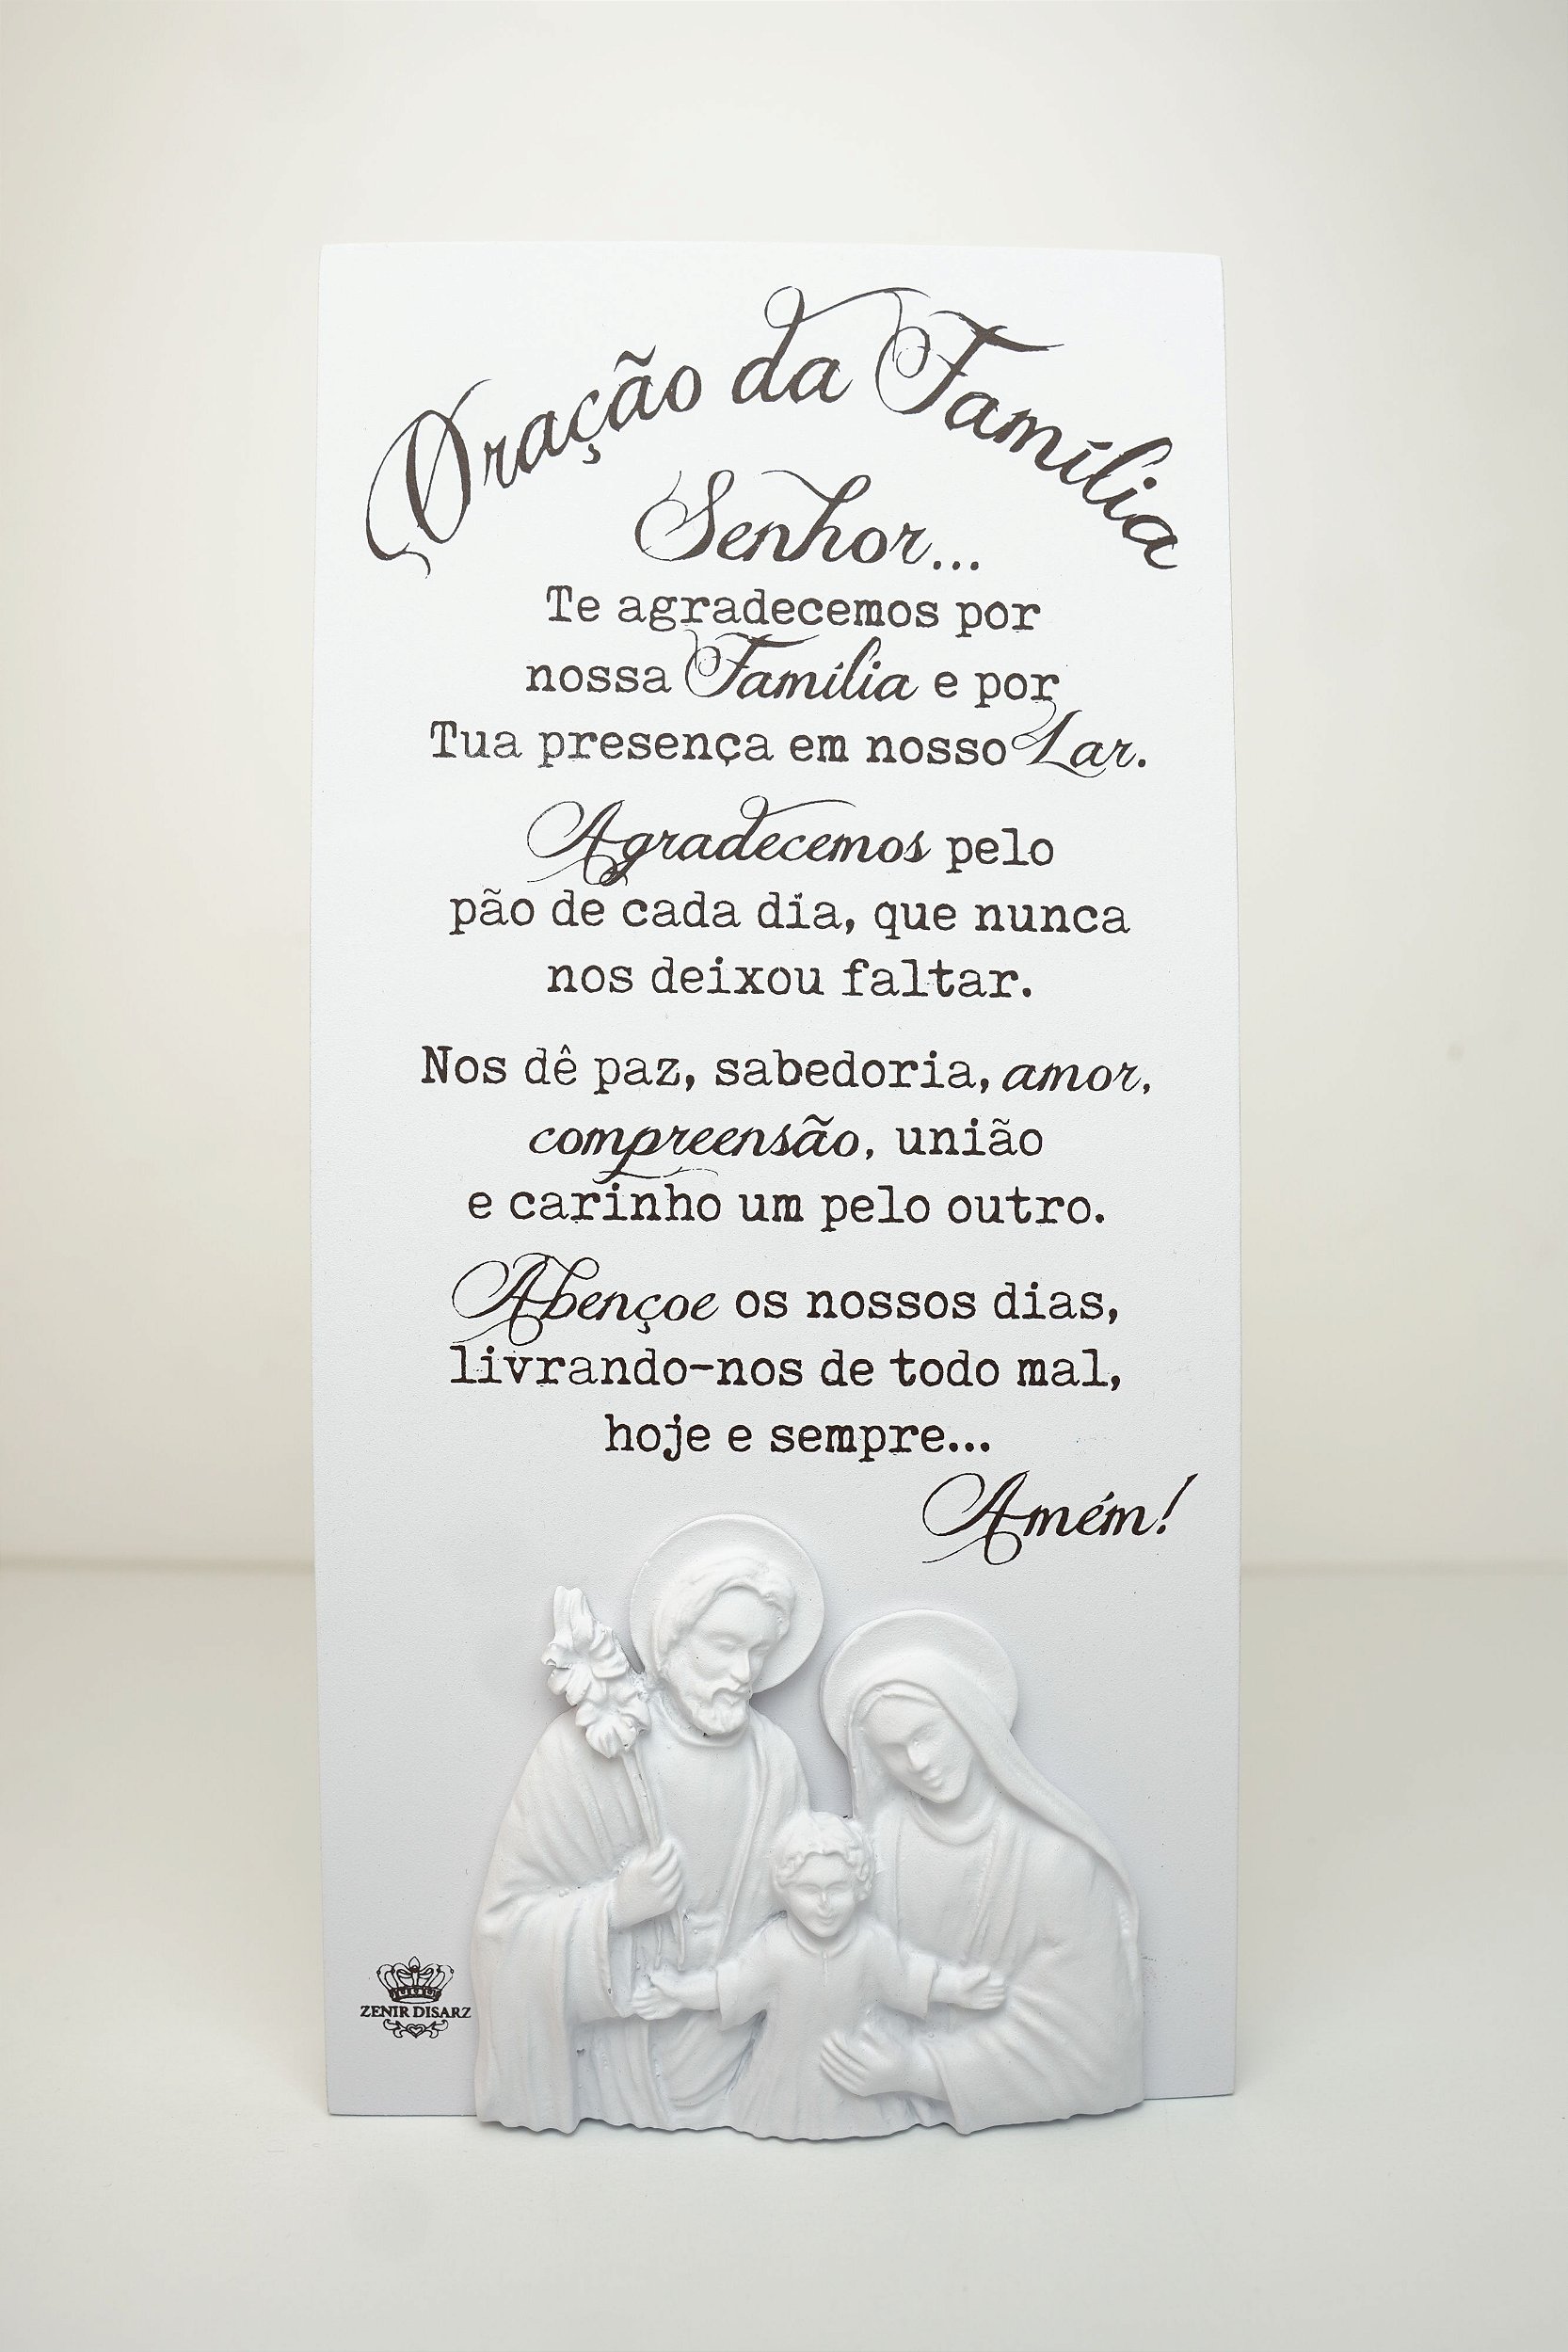 Oração da Família
Senhor...
Te agradecemos por
nossa Família e por
Tua presença em nosso Lar.
Agradecemos pelo
pão de cada dia, que nunca
nos deixou faltar.
Nos dê paz, sabedoria, amor,
compreensão, união
e carinho um pelo outro.
Abençoe os nossos dias,
livrando-nos de todo mal,
hoje e sempre...
Amém!
ZENIR DISARZ